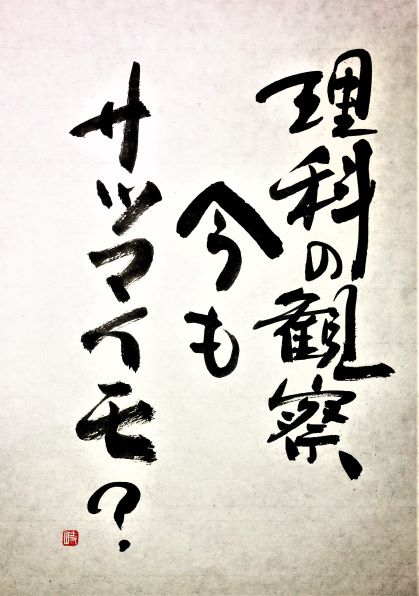 理科の観察
今も
サツマイモ?